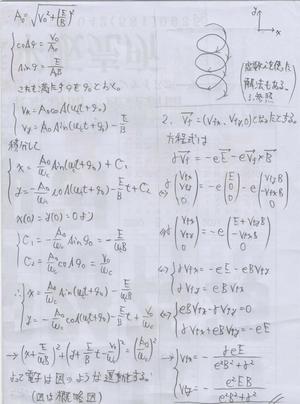 A₀ = √(v₀² + (E/B)²)
cosφ₀ = v₀/A₀
sinφ₀ = E/(A₀B)
これを満たすφをφ₀とおく。
vx = A₀cos(ωct+φ₀)
vy = A₀sin(ωct+φ₀) - E/B
積分して
x = A₀/ωc sin(ωct+φ₀) + C₁
y = -A₀/ωc cos(ωct+φ₀) - E/B t + C₂
x(0) = y(0) = 0より
C₁ = -A₀/ωc sinφ₀ = -E/(ωcB)
C₂ = A₀/ωc cosφ₀ = v₀/ωc
∴ x = A₀/ωc sin(ωct+φ₀) - E/(ωcB)
y = -A₀/ωc cos(ωct+φ₀) - E/B t + v₀/ωc
→ (x + E/(ωcB))² + (y + E/B t - v₀/ωc)² = (A₀/ωc)²
よって電子は図のような運動をする。
(図は概略図)
y
x
使った
解法もある
参照
2. vf = (vfx, vfy, 0)となったとする。
方程式は
γvf = -eE - evf×B
⇔ γ(vfx vfy 0) = -e(E 0 0) - e(vfyB -vfxB 0)
⇔ γ(vfx vfy 0) = -e(E+vfyB -vfxB 0)
⇔ γvfx = -eE - eBvfy
γvfy = eBvfx
⇔ eBvfx - γvfy = 0
γvfx + eBvfy = -eE
→ vfx = -γeE/(e²B²+γ²)
vfy = -e²EB/(e²B²+γ²)